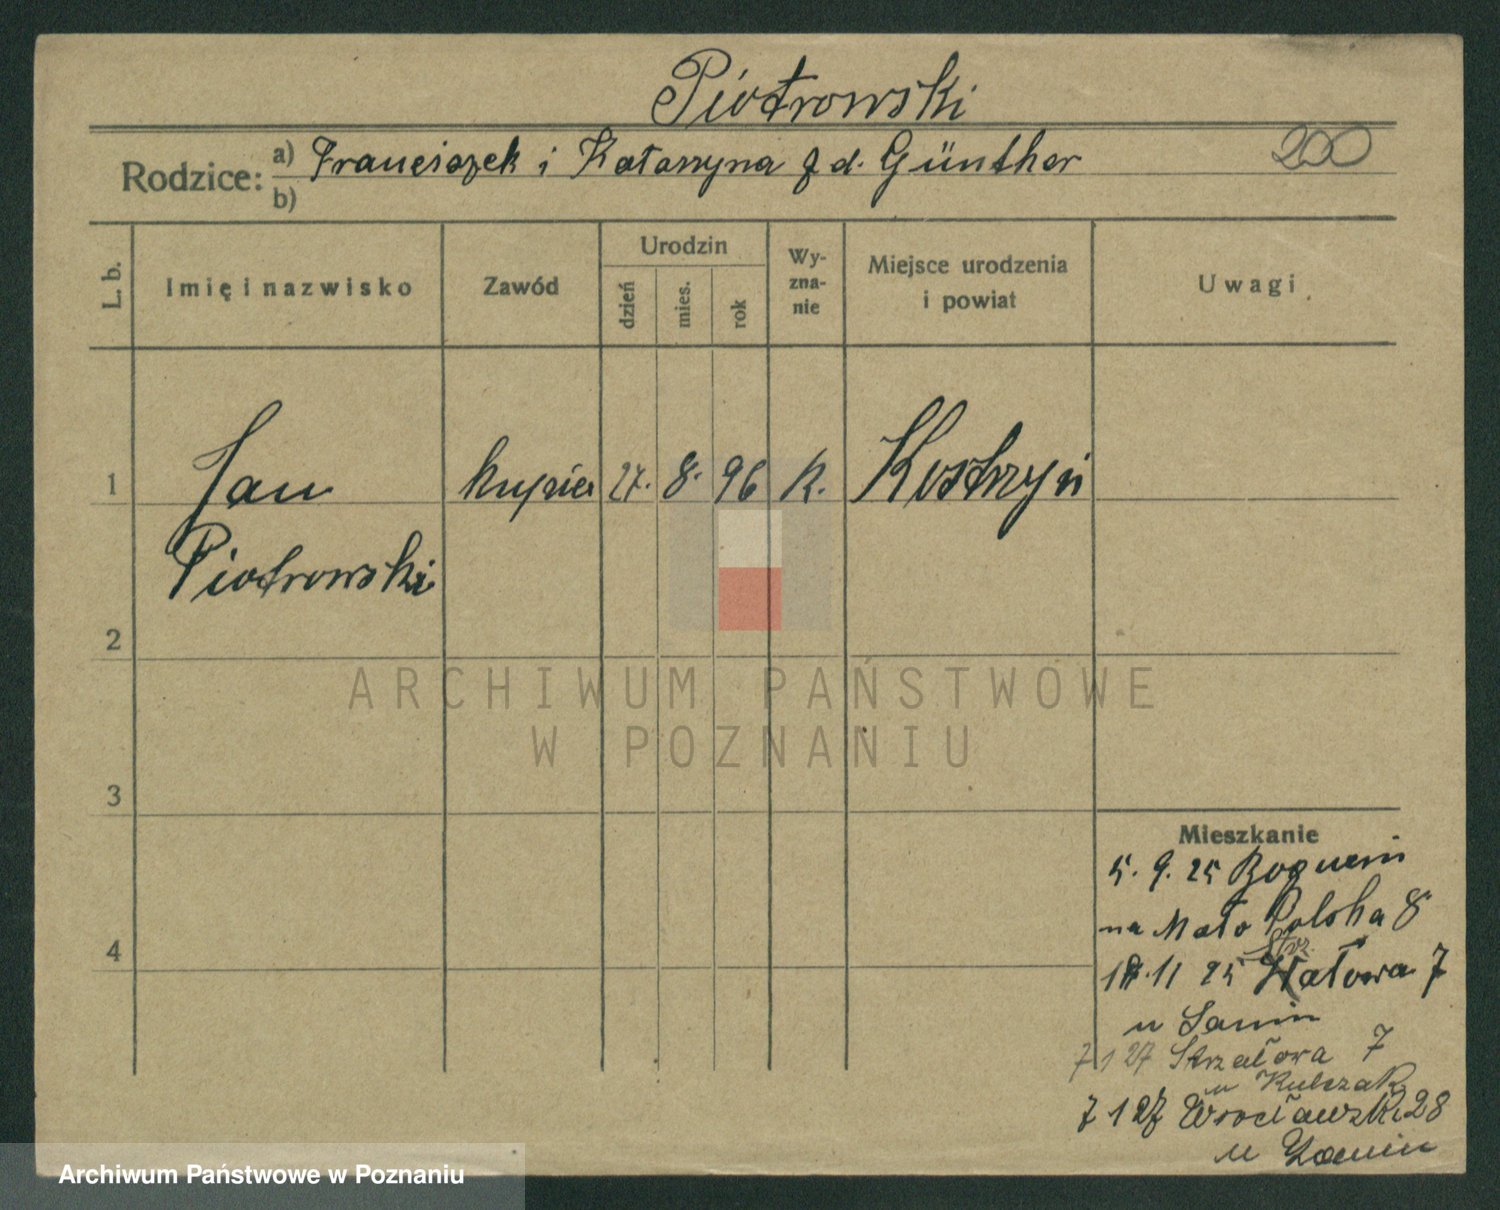 Piotrowski
Rodzice: a) Franciszek i Katarzyna z d. Günther 200
b)
L. b. Imię i nazwisko Zawód Urodzin dzień mies. rok Wy-zna-nie Miejsce urodzenia i powiat Uwagi
1 Jan Piotrowski kupiec 27. 8. 96 k. Kostrzyń
2
ARCHIWUM PAŃSTWOWE
W POZNANIU
3
Mieszkanie
5. 9. 25
na Mało Polska 8
4
Strz.
11 25 Wałowa 7
u
7 1 27 Strzałowa 7
u Kulczak
7 1 27 Wrocławski 28
u
Archiwum Państwowe w Poznaniu